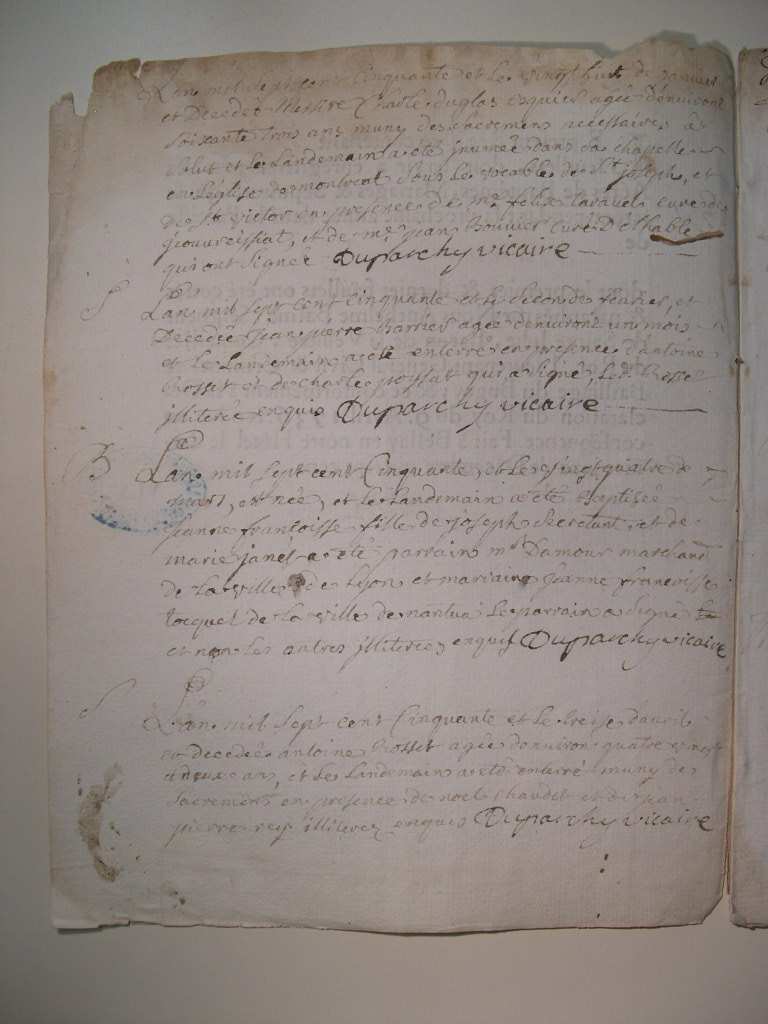 Lan mil sept cent Cinquante et le vingt huit de janvier
est Decedé Messire Charle duglas esquier agée denuiront
soixante trois ans muny des sacremens necessaires à
salut et le Landemain a eté inumée dans sa chapelle
en Léglise de montreal sous le vocable de St joseph, et
de St victor en presence de mre felix curé de
et de mre jean Bouvier curé D'
qui ont signée Duparchy vicaire
S
Lan mil sept cent Cinquante et le second feuries, est
Decedée jean pierre Barries agée denuiront un mois
et le Landemain a eté enterré en presence d'antoine
Rosset et de charle poyfat qui a signé, Led. Rosset
illiterée enquis Duparchy vicaire
B
Lan mil sept cent Cinquante, et le vingt quatre de
mars, est née, et le Landemain a eté Baptisée
jeanne francoisse fille de joseph secretant, et de
marie janet a eté parrain mr Damour marchand
de La ville de Lyon et maraine jeanne francoisse
tocquet de La ville de nantua Le parrain a signé
et non Les autres illiterez enquis Duparchy vicaire
S
Lan mil sept cent Cinquante et le treise d'auril
est decedée antoine Rosset agée denuiron quatre vingt
et deux ans, et Le Landemain a eté enterré muny des
sacremens en presence de noel chaudet et de jean
pierre rey illiterez enquis Duparchy vicaire